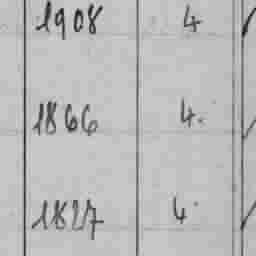 1908 4
1866 4.
1827 4.